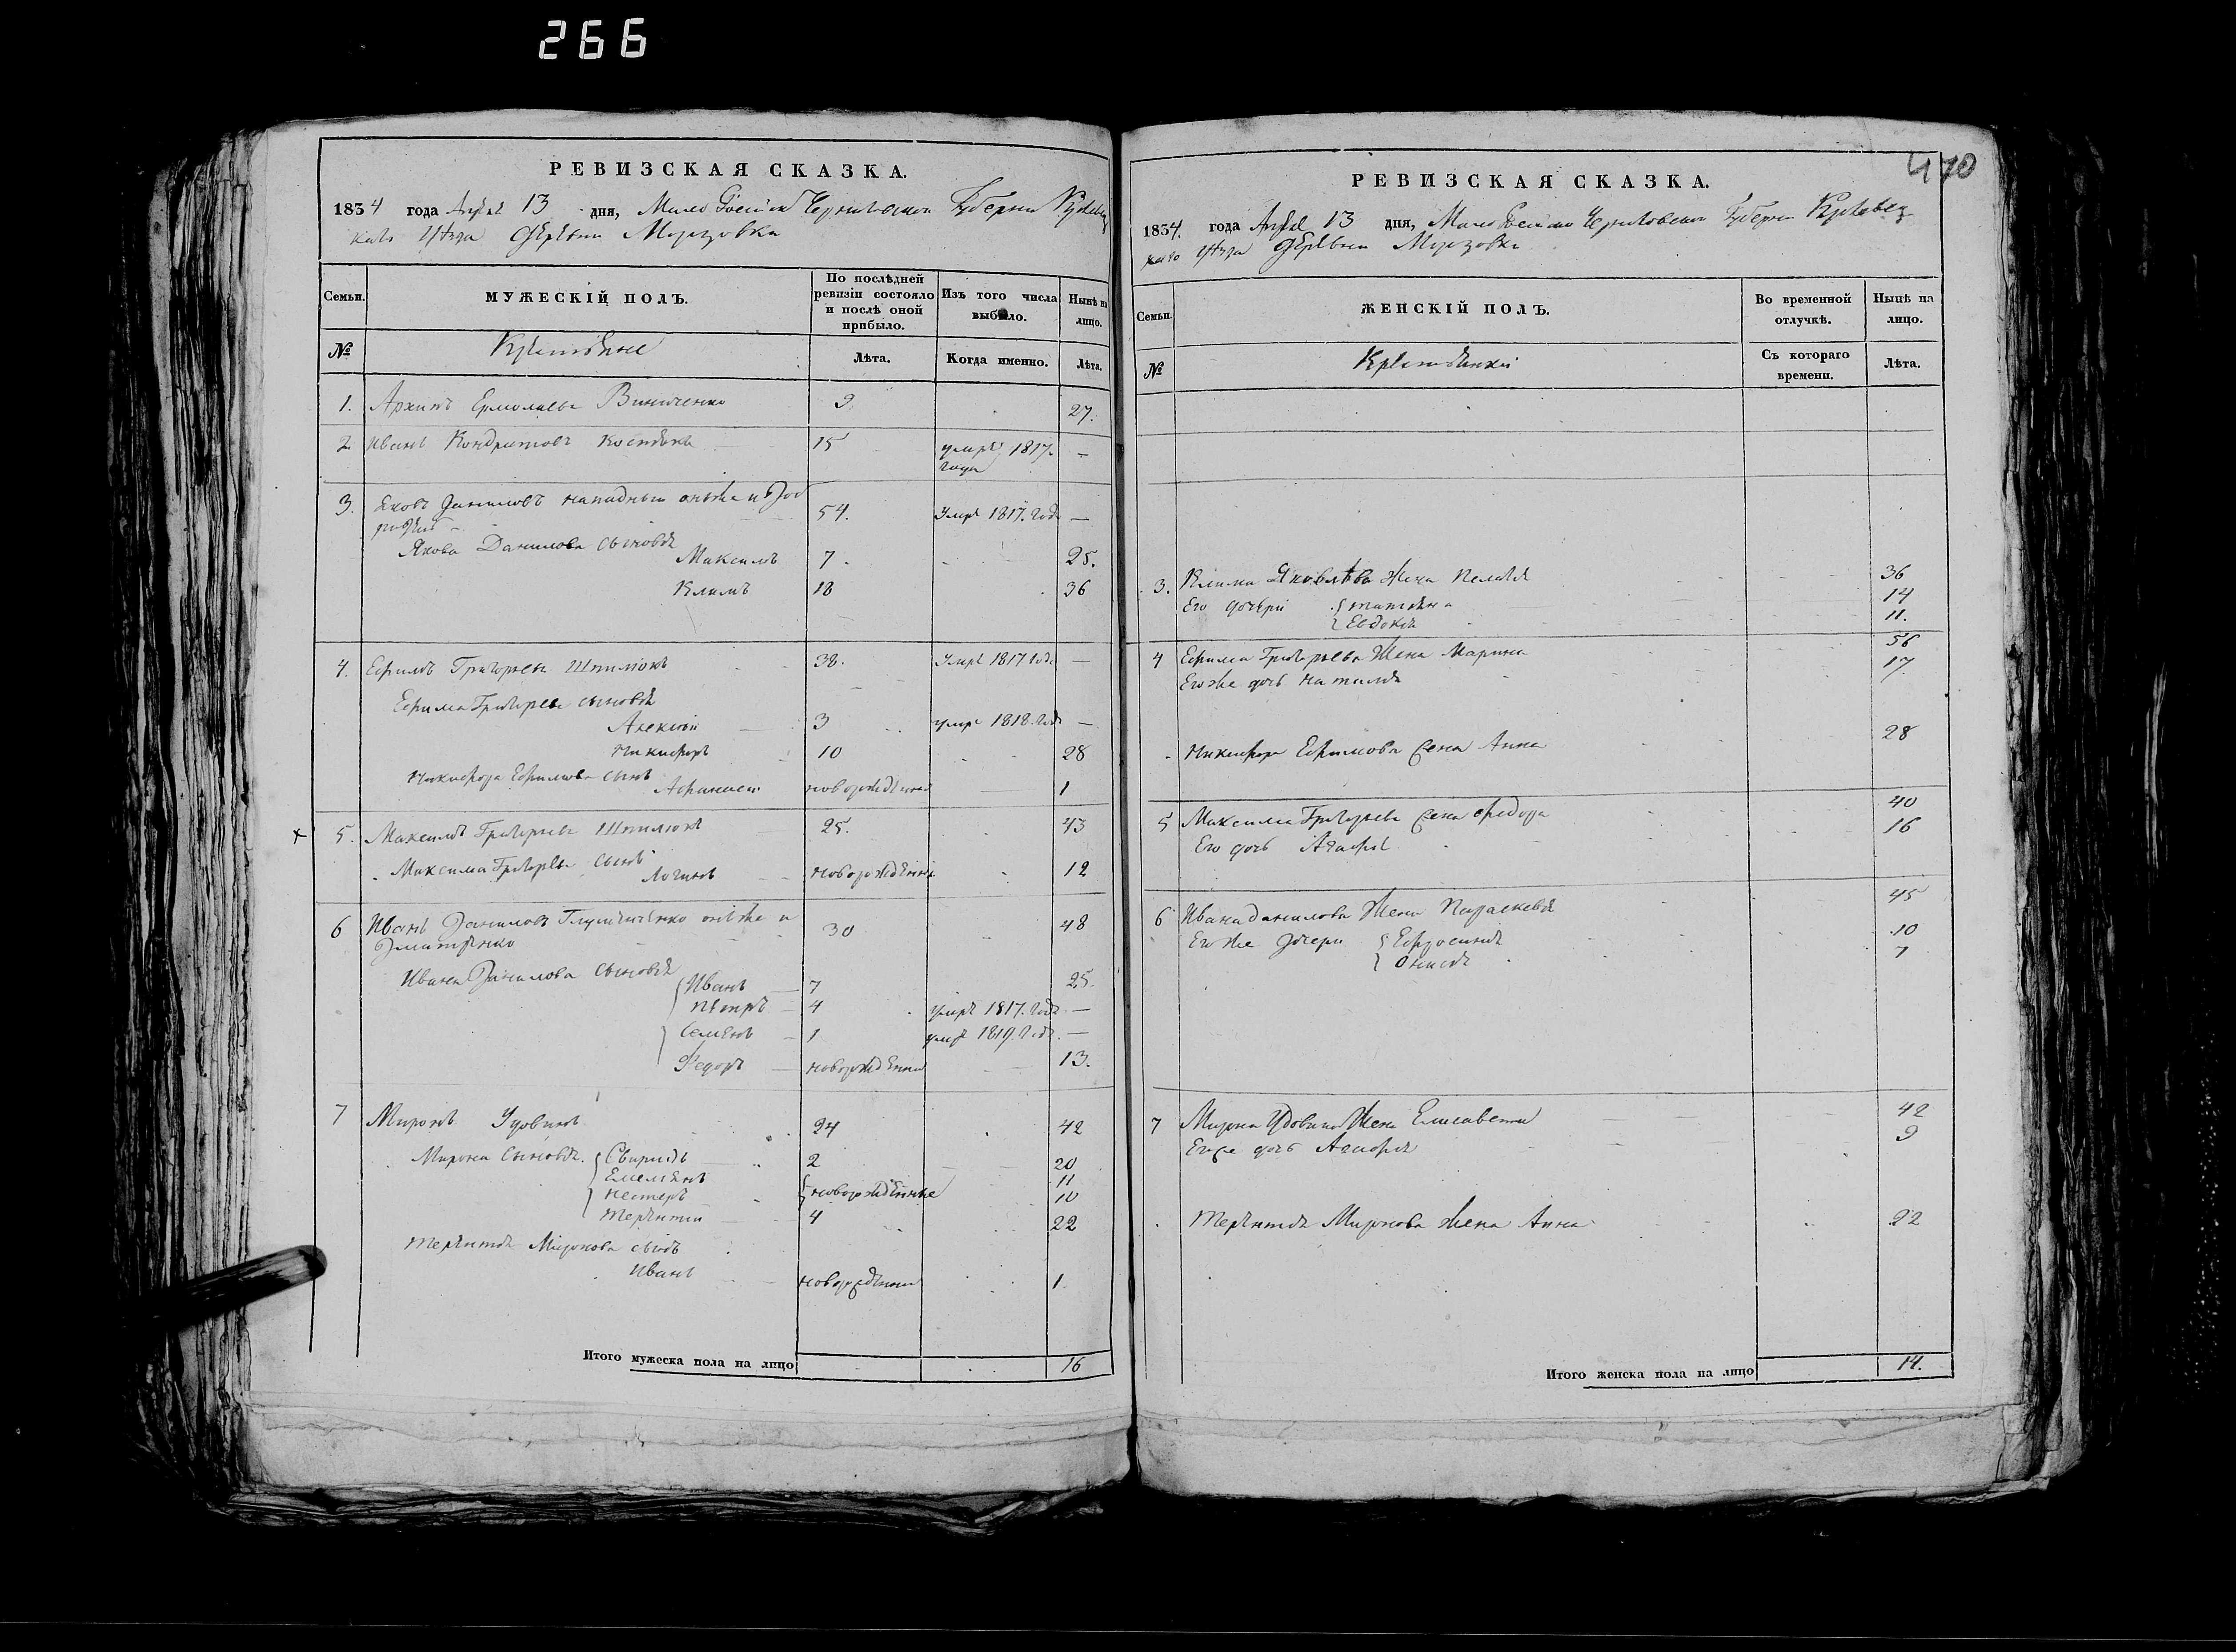 266
РЕВИЗСКАЯ СКАЗКА.
1834 года Апреля 13 дня, Мало Россійской Черниговской Губерни
уезда деревни
Семьи.
МУЖЕСКІЙ ПОЛЪ.
По послѣдней ревизіи состояло и послѣ оной прибыло.
Изъ того числа выбыло.
Нынѣ на лицо.
№
Крестьяне
Лѣта.
Когда именно.
Лѣта.
1. Архипъ Ермолаевъ Виниченко 9 27.
2 Иванъ Кондратовъ 15 умре 1817. года —
3. Яковъ Даниловъ онъже и 54. Умре 1817. года —
Якова Данилова сыновья
Максимъ 7 25.
Климъ 18 36
4. Ефимъ Григорьевъ Шпилюкъ 38. Умре 1817 года —
Ефима Григорьева сыновья
Алексѣй 3 умре 1818. года —
Никифоръ 10 28
Никифора Ефимова сынъ
Афанасий новорожденный 1
5. Максимъ Григорьевъ Шпилюкъ 25. 43
Максима Григорьева сынъ
Логинъ новорожденны 12
6 Иванъ Даниловъ онъже и 30 48
Дмитренко
Ивана Данилова сыновья
Иванъ 7 25.
Петръ 4 умре 1817. года —
Семенъ 1 умре 1819. года —
Федоръ новорожденны 13.
7 Миронъ Удовинъ 24 42
Мирона сыновья. Свиридъ 2 20
Емельянъ 11
Нестеръ новорожденные 10
Терентий 4 22
Терентия Миронова сынъ
Иванъ новорожденны 1
Итого мужеска пола на лицо 16
470
РЕВИЗСКАЯ СКАЗКА.
1834. года Апреля 13 дня, Мало Россійско Черниговской Губерни
уезда деревни
Семьи.
ЖЕНСКІЙ ПОЛЪ.
Во временной отлучкѣ.
Нынѣ на лицо.
№
Крестьянки
Съ котораго времени.
Лѣта.
3. Клима Яковлѣва жена Пелагия 36
Его дочери Татьяна 14
Евдокия 11.
4 Ефима Григорьева Жена Марина 56
Его же дочь Наталья 17
Никифора Ефимова жена Анна 28
5 Максима Григорьева жена Федора 40
Его дочь Агафья 16
6 Ивана Данилова Жена Параскевия 45
Его же дочери Ефросиния 10
7
7 Мирона Удовина Жена Елисавета 42
Его же дочь Агафья 9
Терентия Миронова жена Анна 22
Итого женска пола на лицо 14.